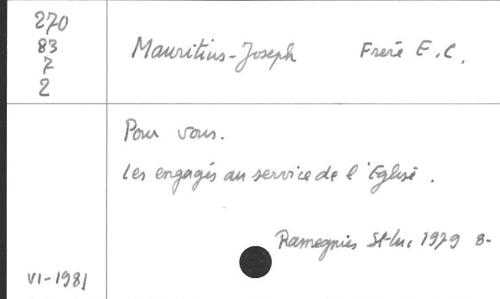 270
83
7
2
Mauritius-Joseph Frere E.C.
Pour vous.
Les engagés au service de l'Eglise.
Ramegnies St-Luc 1979 8-
VI-1981